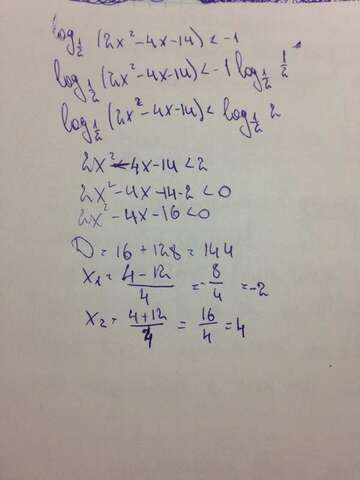 log_{1/2} (2x² -4x-14) < -1
log_{1/2} (2x² -4x-14) < -1 log_{1/2} 1/2
log_{1/2} (2x² -4x-14) < log_{1/2} 2
2x² -4x-14 < 2
2x² -4x-14-2 < 0
2x² -4x-16 < 0
D = 16 + 128 = 144
x₁ = (4-12)/4 = -8/4 = -2
x₂ = (4+12)/4 = 16/4 = 4